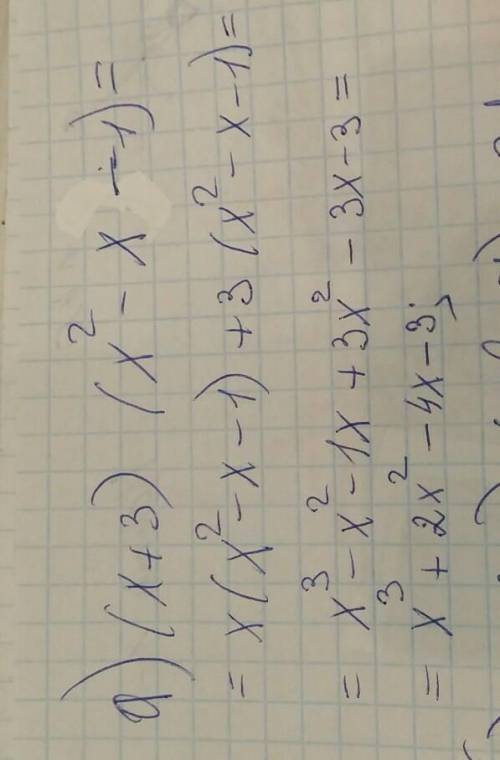 a) (x+3) (x² - x - 1) =
= x(x² - x - 1) + 3 (x² - x - 1) =
= x³ - x² - 1x + 3x² - 3x - 3 =
= x³ + 2x² - 4x - 3;